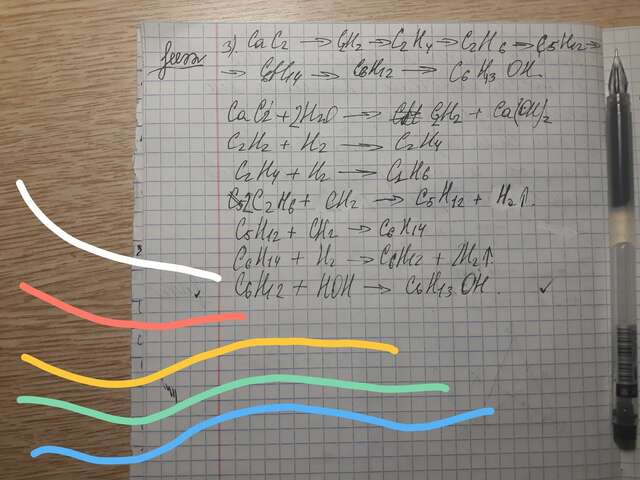 3) CaC2 → C2H2 → C2H4 → C2H6 → C5H12 →
→ C6H14 → C6H12 → C6H13 OH.
CaC2 + 2H2O → C2H2 + Ca(OH)2
C2H2 + H2 → C2H4
C2H4 + H2 → C2H6
2C2H6 + CH2 → C5H12 + H2↑.
C5H12 + CH2 → C6H14
C6H14 + H2 → C6H12 + 2H2↑
C6H12 + HOH → C6H13 OH.